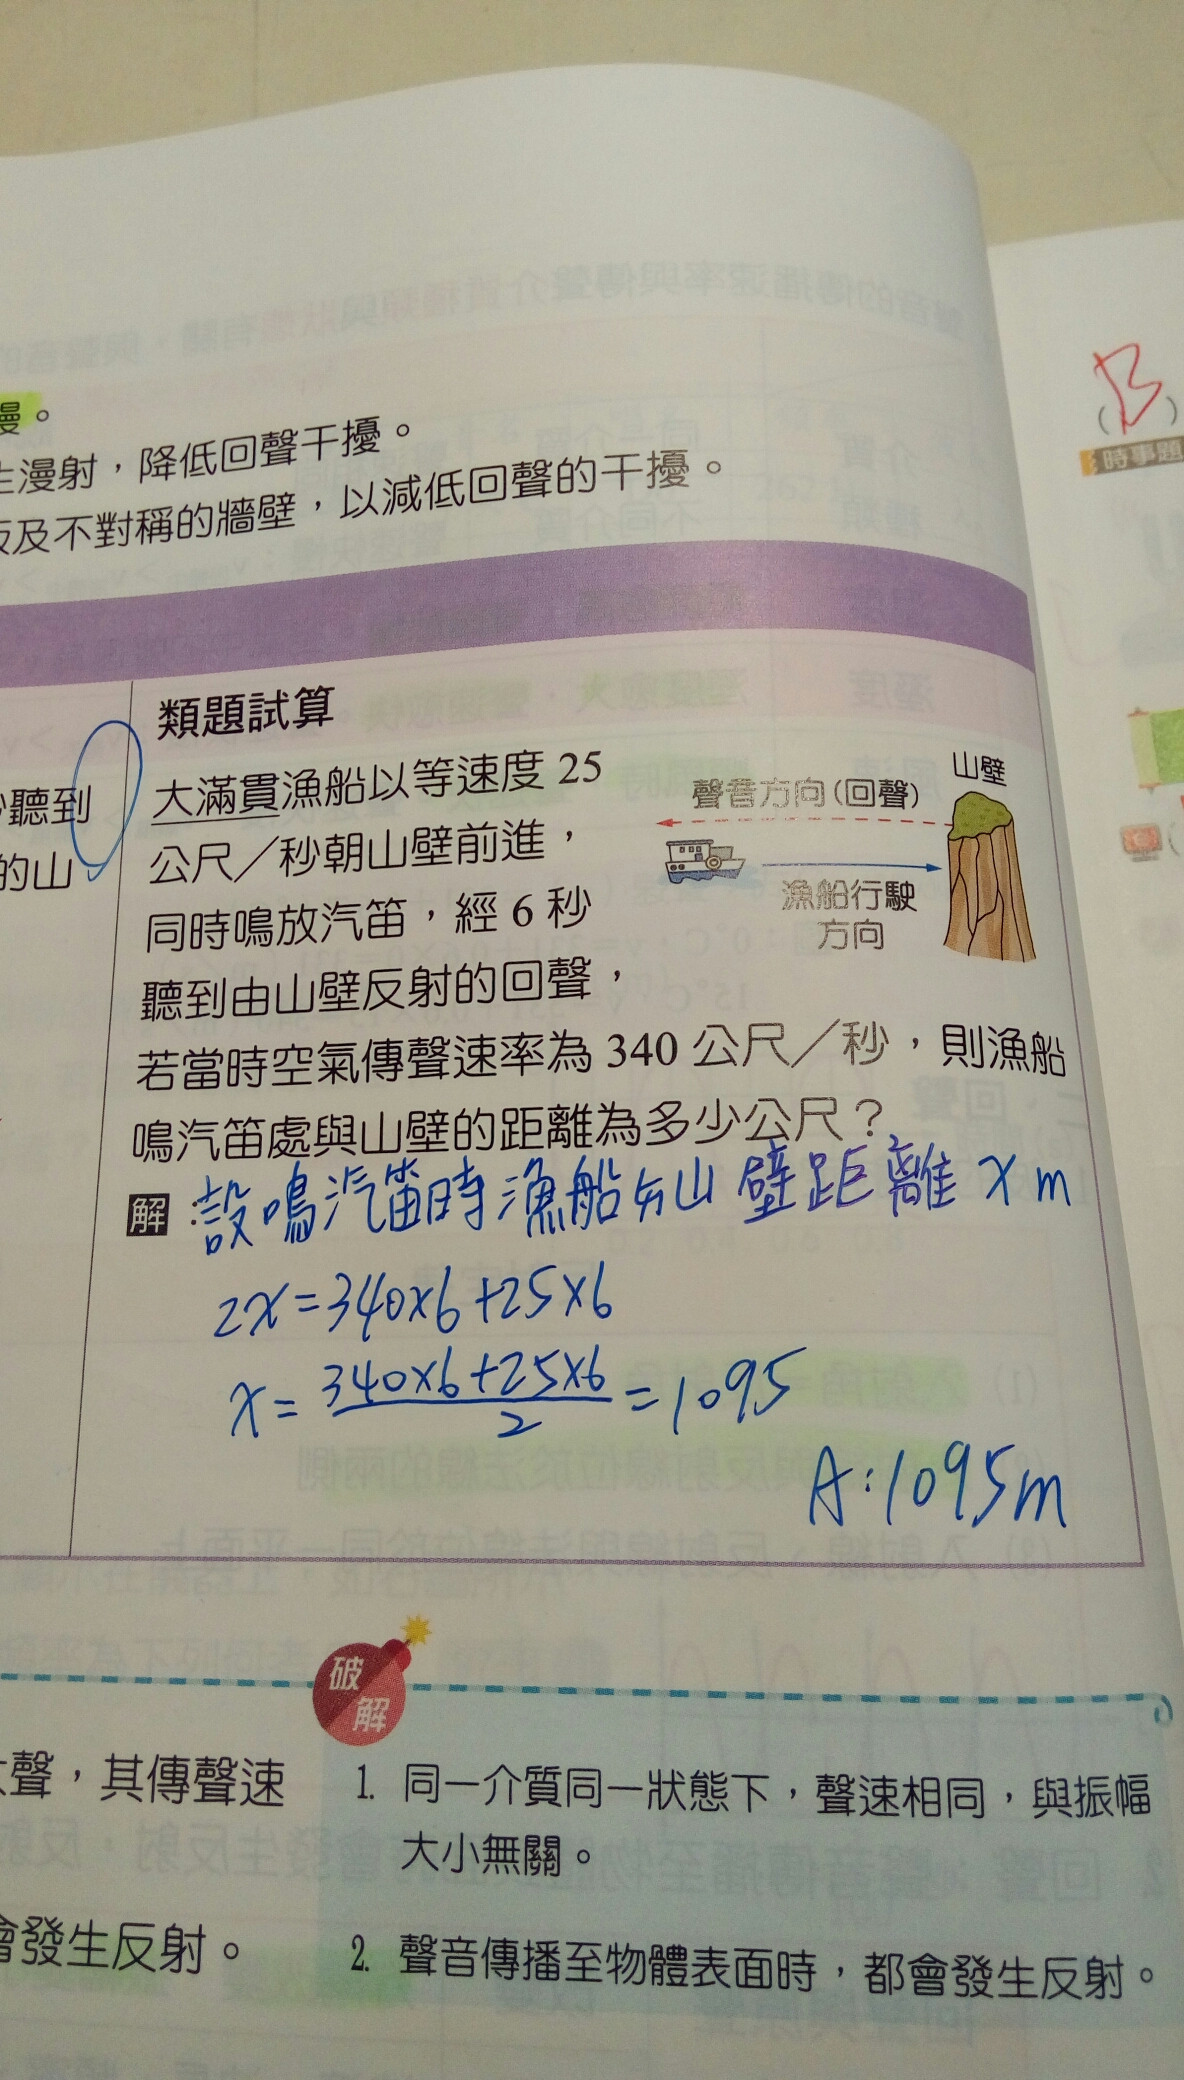 慢。
生漫射，降低回聲干擾。
板及不對稱的牆壁，以減低回聲的干擾。
(B)
時事題
聽到
的山
類題試算
大滿貫漁船以等速度 25
公尺／秒朝山壁前進，
同時鳴放汽笛，經 6 秒
聽到由山壁反射的回聲，
若當時空氣傳聲速率為 340 公尺／秒，則漁船
鳴汽笛處與山壁的距離為多少公尺？
山壁
聲音方向(回聲)
漁船行駛
方向
解:設鳴汽笛時漁船與山壁距離 x m
2x=340×6+25×6
x=340×6+25×6/2=1095
A:1095m
破
解
聲，其傳聲速
會發生反射。
1. 同一介質同一狀態下，聲速相同，與振幅
大小無關。
2. 聲音傳播至物體表面時，都會發生反射。